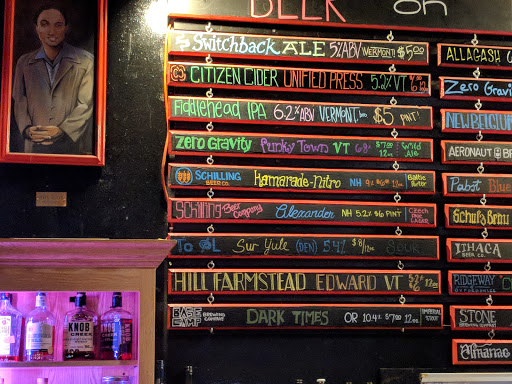 BEER on
Switchback ALE 5% ABV VERMONT $5.00
CITIZEN CIDER UNIFIED PRESS 5.2% VT
Fiddlehead IPA 6.2% ABV VERMONT $5 PINT
Zero Gravity Funky Town VT $7.00 12oz Wild Ale
SCHILLING BEER CO. Hamarade-Nitro NH Baltic Porter
Schilling Beer Company Alexander NH 5.2% $6 PINT CZECH PALE LAGER
To ØL Sur Yule (DEN) 5.4% $8/12oz SOUR
HILL FARMSTEAD EDWARD VT 5.2%
BASE CAMP BREWING COMPANY DARK TIMES OR 10.4% $7.00 12oz IMPERIAL STOUT
ALLAGASH
Zero Gravi
NEW BELGIUM
AERONAUT B
Pabst Blue
ITHACA BEER CO.
RIDGEWAY
STONE BREWING COMPANY
Almanac
KNOB CREEK
KNOB CREEK